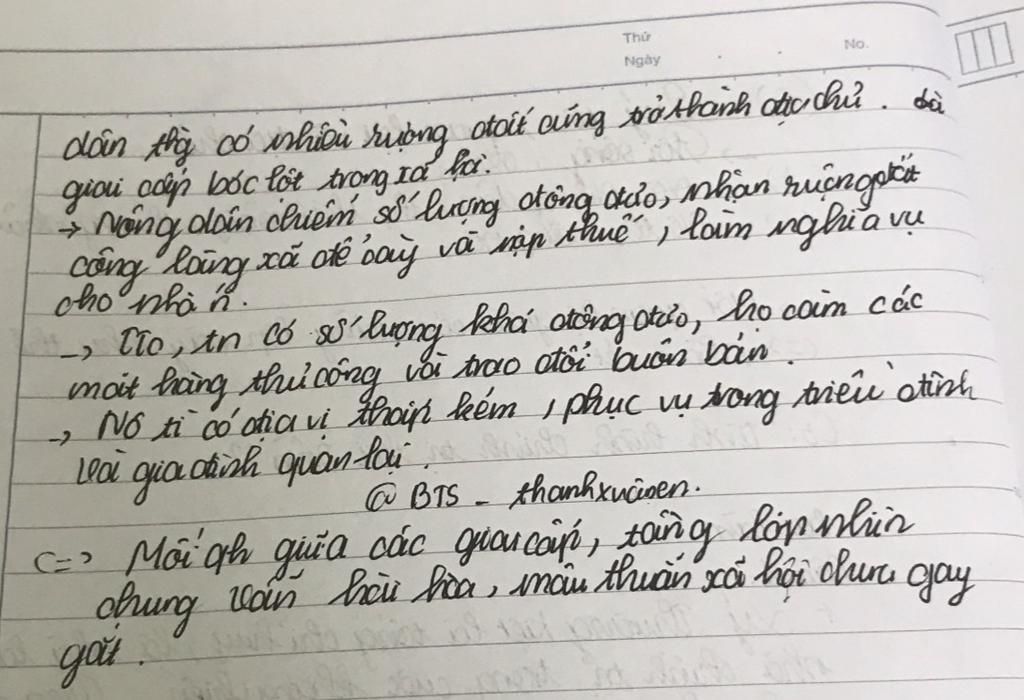 Thứ
Ngày
No.
dân thg có nhiều ruộng đất cũng trở thành địa chủ. là
giai cấp bóc lột trong xã hội.
→ Nông dân chiếm số lượng đông đảo, nhận ruộng đất
công làng xã để cày và nạp thuế, làm nghĩa vụ
cho nhà n.
→ TTC, tn có số lượng khá đông đảo, họ làm các
mặt hàng thủ công và trao đổi buôn bán.
→ Nô tì có địa vị thấp kém, phục vụ trong triều đình
và gia đình quan lại.
@ BTS - thanhxuâncen.
<=> Mối qh giữa các giai cấp, tầng lớp nhìn
chung vẫn hài hòa, mâu thuẫn xã hội chưa gay
gắt.